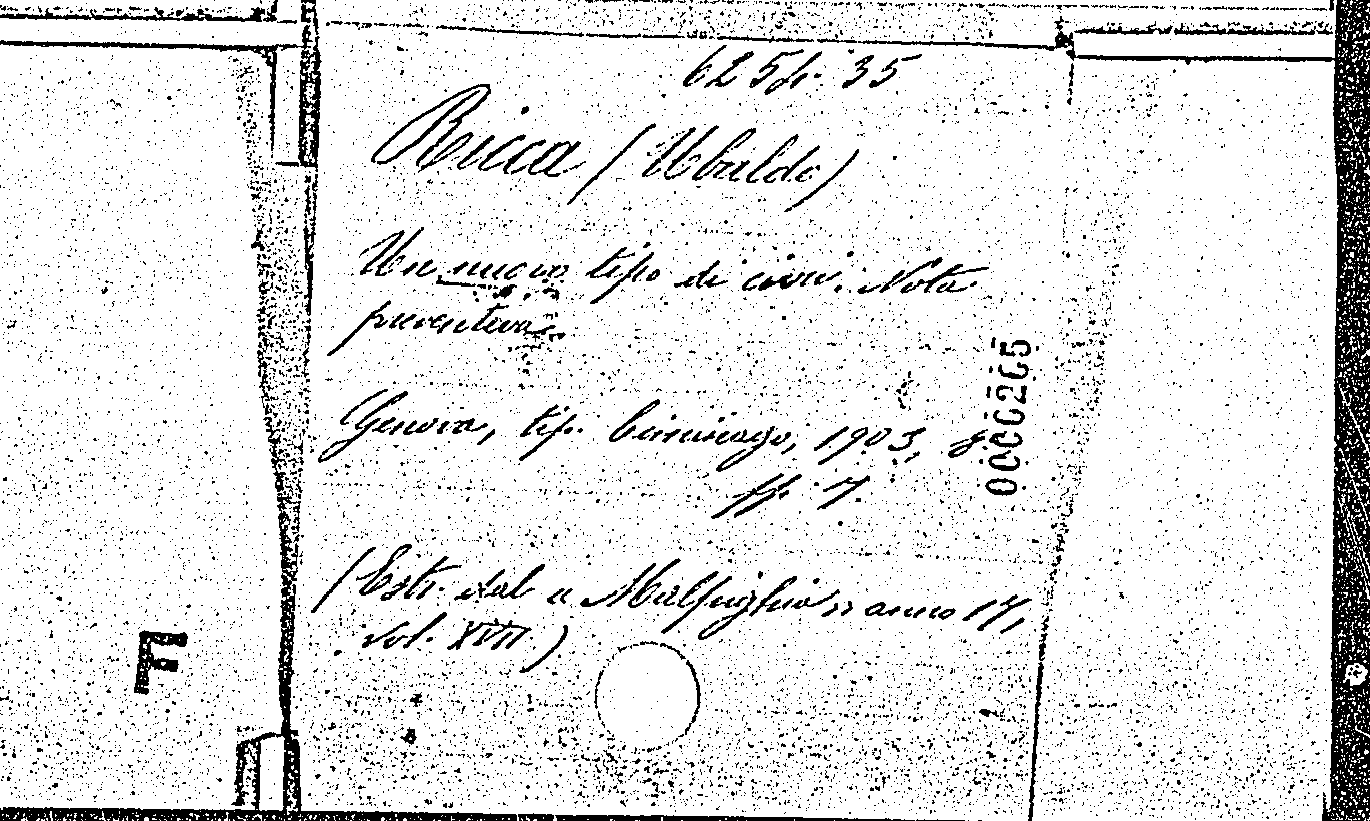 625 fr. 35
Ricca (Ubaldo)
Un nuovo tipo di cirri. Nota
preventiva.
Genova, tip. Ciminago, 1903, 8°
pp. 7.
(Estr. dal « Malpighia » anno 17,
vol. XVII.)
0000265
F